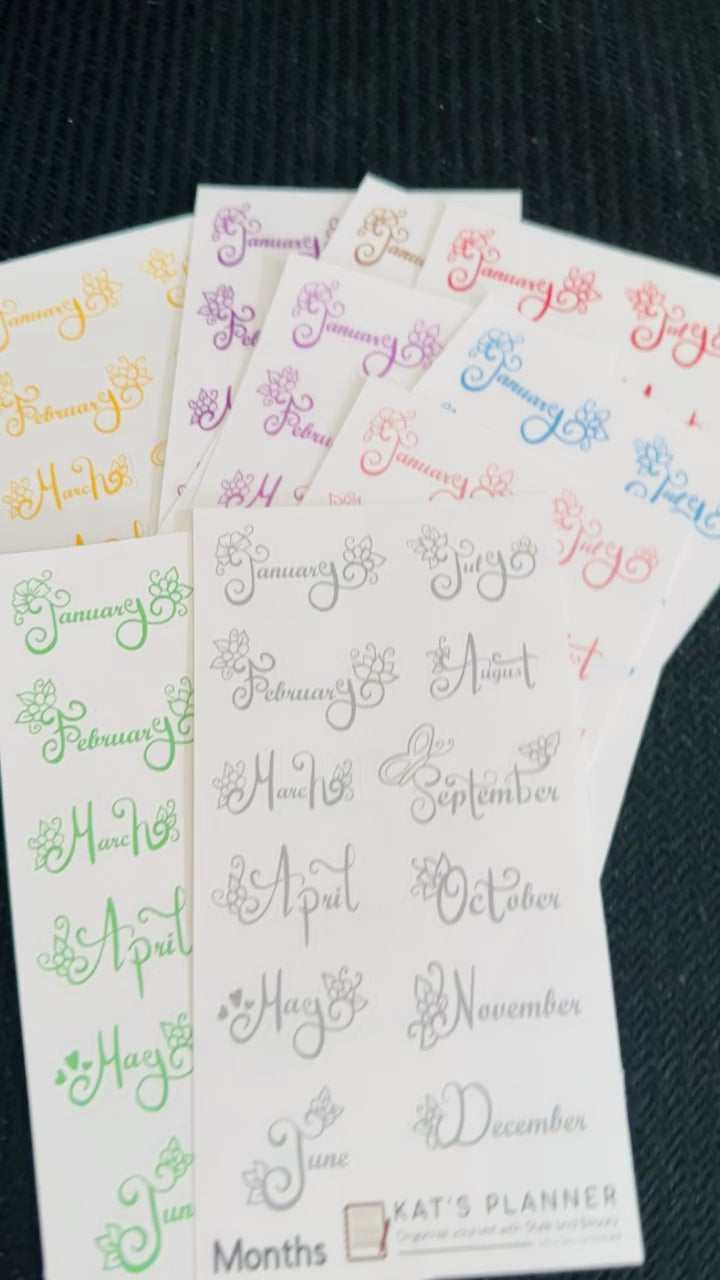 January
January
Janu
January
July
January
Febru
January
February
Feb
July
March
January
July
January
February
March
April
May
Jun
January July
February August
March September
April October
May November
June December
KAT'S PLANNER
Organize yourself with Style and Beauty
Months